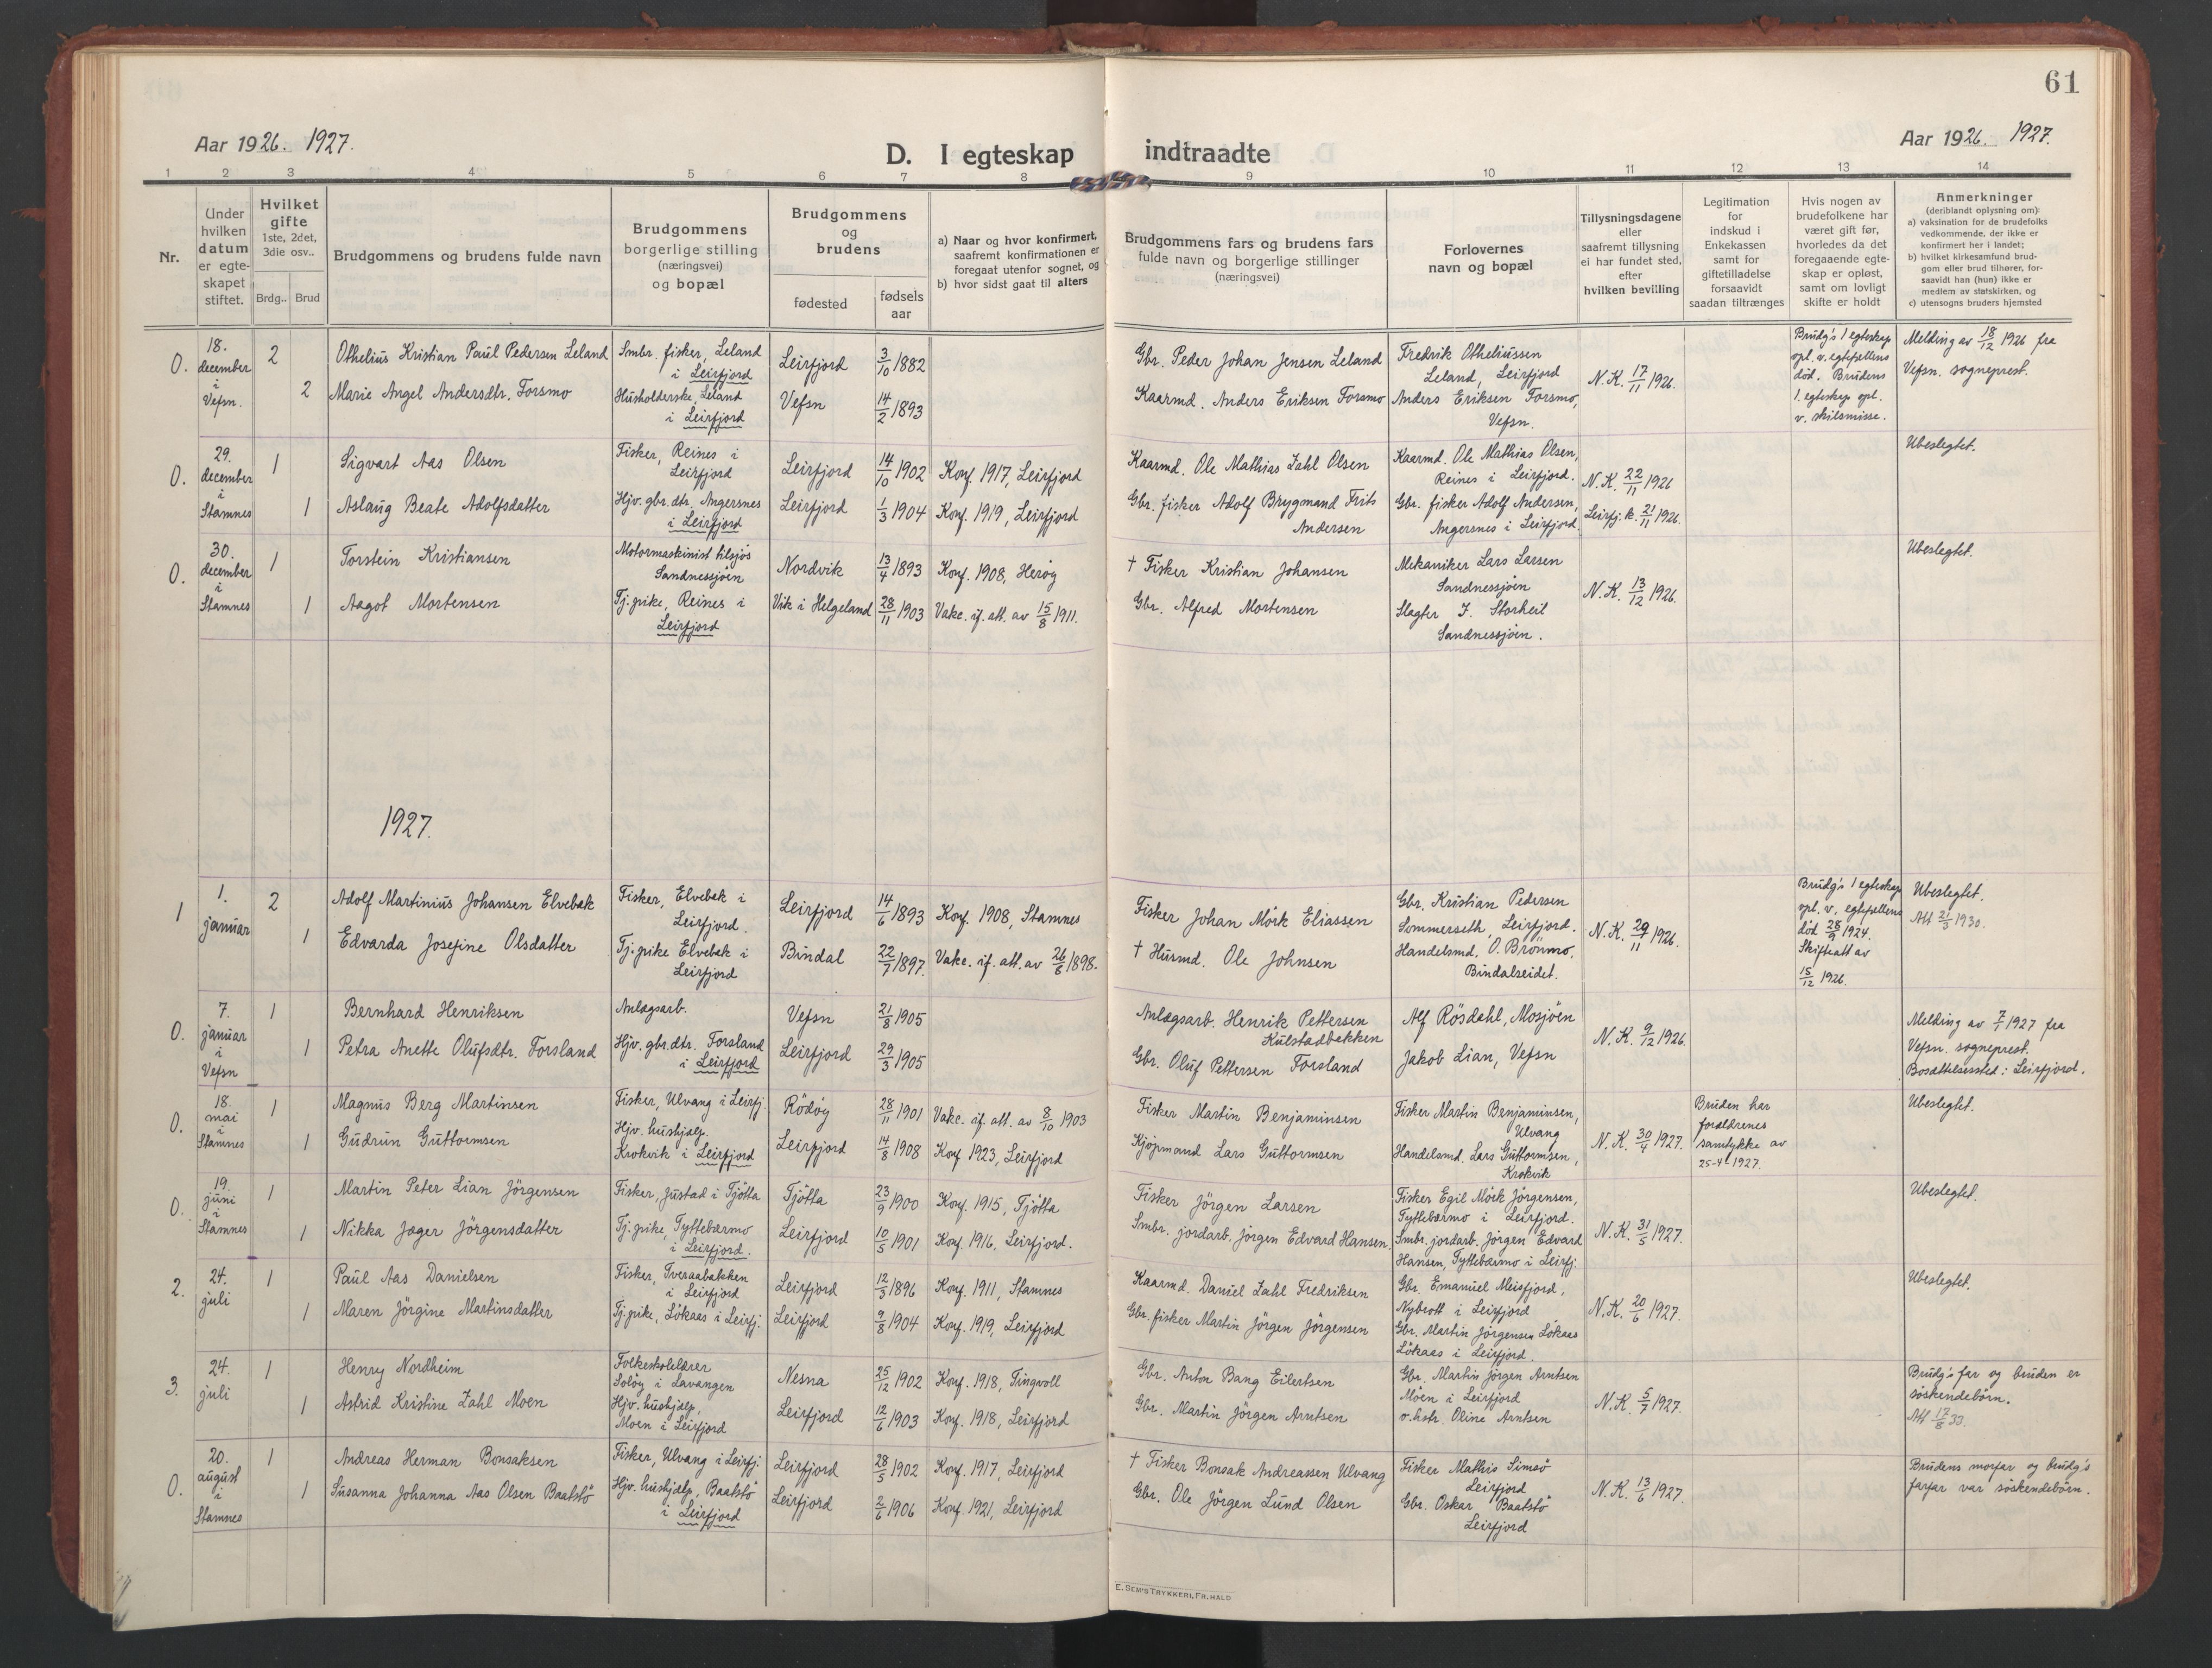 61
Aar 1926. 1927.
D. I egteskap indtraadte
Aar 1926. 1927.
1 2 3 4 5 6 7 8 9 10 11 12 13 14
Nr.
Under hvilken datum er egteskapet stiftet.
Hvilket gifte 1ste, 2det, 3die osv..
Brdg.. Brud
Brudgommens og brudens fulde navn
Brudgommens borgerlige stilling (næringsvei) og bopæl
Brudgommens og brudens
fødested
fødsels aar
a) Naar og hvor konfirmert, saafremt konfirmationen er foregaat utenfor sognet, og
b) hvor sidst gaat til alters
Brudgommens fars og brudens fars fulde navn og borgerlige stillinger (næringsvei)
Forlovernes navn og bopæl
Tillysningsdagene eller saafremt tillysning ei har fundet sted, efter hvilken bevilling
Legitimation for indskud i Enkekassen samt for giftetilladelse forsaavidt saadan tiltrænges
Hvis nogen av brudefolkene har været gift før, hvorledes da det foregaaende egteskap er opløst, samt om lovligt skifte er holdt
Anmerkninger (deriblandt oplysning om):
a) vaksination for de brudefolks vedkommende, der ikke er konfirmert her i landet;
b) hvilket kirkesamfund brudgom eller brud tilhører, forsaavidt han (hun) ikke er medlem av statskirken, og
c) utensogns bruders hjemsted
0. 18. december i Vefsn. 2 Othelius Kristian Paul Pedersen Leland Smbr. fisker, Leland i Leirfjord Leirfjord 3/10 1882 Gbr. Peder Johan Jensen Leland Fredrik Otheliussen Leland, Leirfjord N.K. 17/11 1926. Brudg's 1 egteskap opl. v. egtefællens død. Brudens 1. egteskap opl. v. skilsmisse. Melding av 18/12 1926 fra Vefsn. sogneprest.
2 Marie Angel Andersdtr. Forsmo Husholderske, Leland i Leirfjord Vefsn 14/2 1893 Kaarmd. Anders Eriksen Forsmo Anders Eriksen Forsmo, Vefsn.
0. 29. december i Stamnes 1 Sigvart Aas Olsen Fisker, Reines i Leirfjord Leirfjord 14/10 1902 Konf. 1917, Leirfjord Kaarmd. Ole Mathias Zahl Olsen Kaarmd. Ole Mathias Olsen, Reines i Leirfjord. N.K. 22/11 1926 Ubeslegtet.
1 Aslaug Beate Adolfsdatter Hjv. gbr. dtr. Angersnes i Leirfjord Leirfjord 1/3 1904 Konf. 1919, Leirfjord Gbr. fisker Adolf Brygmand Frits Andersen Gbr. fisker Adolf Andersen, Angersnes i Leirfjord Leirfj. k. 21/11 1926.
0. 30. december i Stamnes 1 Torstein Kristiansen Motormaskinist tilsjøs Sandnessjöen Nordvik 13/4 1893 Konf. 1908, Heröy † Fisker Kristian Johansen Mekaniker Lars Larsen Sandnessjöen N.K. 13/12 1926. Ubeslegtet.
1 Aagot Mortensen Tj. pike, Reines i Leirfjord Vik i Helgeland 28/11 1903 Vakc. if. att. av 15/8 1911. Gbr. Alfred Mortensen Slagter J. Storheil Sandnessjöen.
1927.
1 1. januar 2 Adolf Martinius Johansen Elvebak Fisker, Elvebak i Leirfjord. Leirfjord 14/6 1893 Konf. 1908, Stamnes Fisker Johan Mörk Eliassen Gbr. Kristian Pedersen Sommerseth, Leirfjord. N.K. 29/11 1926. Brudg's 1 egteskap opl. v. egtefællens død 28/9 1924. Skifteatt av 15/12 1926. Ubeslegtet. Att 21/3 1930.
1 Edvarda Josefine Olsdatter Tj. pike Elvebak i Leirfjord Bindal 22/7 1897. Vakc. if. att. av 26/6 1898. † Husmd. Ole Johnsen Handelsmd. O. Brönmo, Bindalseidet.
0. 7. januar i Vefsn 1 Bernhard Henriksen Anlægsarb. Vefsn 21/8 1905 Anlægsarb. Henrik Pettersen Kulstadbakken Alf Rösdahl, Mosjöen N.K. 9/12 1926. Melding av 7/1 1927 fra Vefsn. sogneprest. Bosættelsessted: Leirfjord.
1 Petra Anette Olufsdtr. Forsland Hjv. gbr. dtr. Forsland i Leirfjord Leirfjord 29/3 1905 Gbr. Oluf Pettersen Forsland Jakob Lian, Vefsn
0. 18. mai i Stamnes 1 Magnus Berg Martinsen Fisker, Ulvang i Leirfj. Rödöy 28/11 1901 Vakc. if. att. av 8/10 1903 Fisker Martin Benjaminsen Fisker Martin Benjaminsen, Ulvang N.K. 30/4 1927. Bruden har forældrenes samtykke av 25-4 1927. Ubeslegtet.
1 Gudrun Guttormsen Hjv. hushjælp. Krokvik i Leirfjord Leirfjord 14/8 1908 Konf 1923, Leirfjord Kjøpmand Lars Guttormsen Handelsmd. Lars Guttormsen, Krokvik
0. 19. juni i Stamnes 1 Martin Peter Lian Jörgensen Fisker, Justad i Tjötta Tjötta 23/9 1900 Konf. 1915, Tjötta Fisker Jörgen Larsen Fisker Egil Mörk Jörgensen, Tyttebærmo i Leirfjord. N.K. 31/5 1927. Ubeslegtet.
1 Nikka Jæger Jörgensdatter Tj. pike, Tyttebærmo i Leirfjord. Leirfjord 10/5 1901 Konf. 1916, Leirfjord. Smbr. jordarb. Jörgen Edvard Hansen. Smbr. jordarb. Jörgen Edvard Hansen, Tyttebærmo i Leirfj.
2. 24. juli 1 Paul Aas Danielsen Fisker, Tveraabakken i Leirfjord Leirfjord 12/5 1896 Konf. 1911, Stamnes Kaarmd. Daniel Zahl Fredriksen Gbr. Emanuel Meisfjord, Nybrott i Leirfjord N.K. 20/6 1927. Ubeslegtet.
1 Maren Jörgine Martinsdatter Tj. pike, Lökaas i Leirfj. Leirfjord 9/8 1904 Konf. 1919, Leirfjord Gbr. fisker Martin Jörgen Jörgensen Gbr. Martin Jörgensen Lökaas Lökaas i Leirfjord.
3. 24. juli 1 Henry Nordheim Folkeskolelærer Soløy i Lavangen Nesna 25/12 1902 Konf. 1918, Tingvoll Gbr. Anton Bang Eilertsen Gbr. Martin Jörgen Arntsen Moen i Leirfjord N.K. 5/7 1927. Brudg's far og bruden er söskendebörn. Att 17/8 33.
1 Astrid Kristine Zahl Moen Hjv. hushjælp, Moen i Leirfjord Leirfjord 12/6 1903 Konf. 1918, Leirfjord Gbr. Martin Jörgen Arntsen o. hstr. Oline Arntsen
0. 20. august i Stamnes 1 Andreas Herman Bonsaksen Fisker, Ulvang i Leirfj. Leirfjord 28/5 1902 Konf. 1917, Leirfjord † Fisker Bonsak Andreassen Ulvang Fisker Mathis Simsø Leirfjord N.K. 13/6 1927. Brudens morfar og brudg's farfar var söskendebörn.
1 Susanna Johanna Aas Olsen Baatstö Hjv. hushjælp, Baatstö i Leirfjord Leirfjord 2/6 1906 Konf. 1921, Leirfjord Gbr. Ole Jörgen Lund Olsen Gbr. Oskar Baatstö Leirfjord
E. SEM'S TRYKKERI, FR.HALD